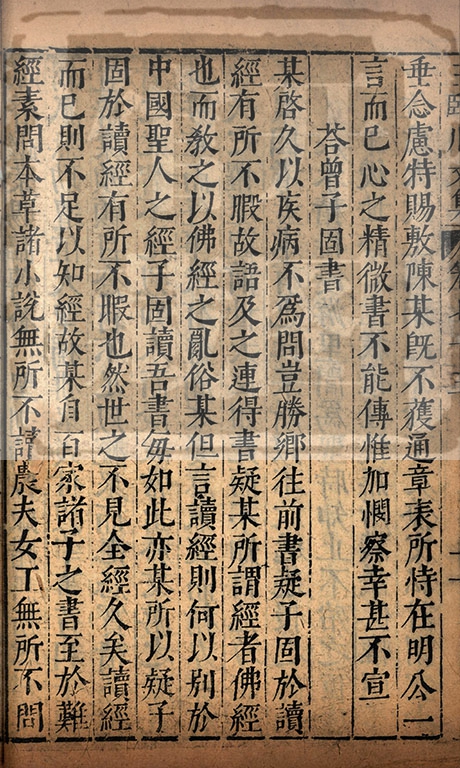 垂念慮特賜敷陳某旣不獲通章表所恃在明公一
言而已心之精微書不能傳惟加憫察幸甚不宣
荅曾子固書
某啓久以疾病不爲問豈勝鄉往前書疑子固於讀
經有所不暇故語及之連得書疑某所謂經者佛經
也而敎之以佛經之亂俗某但言讀經則何以别於
中國聖人之經子固讀吾書每如此亦某所以疑子
固於讀經有所不暇也然世之不見全經久矣讀經
而已則不足以知經故某自百家諸子之書至於難
經素問本草諸小說無所不讀農夫女工無所不問